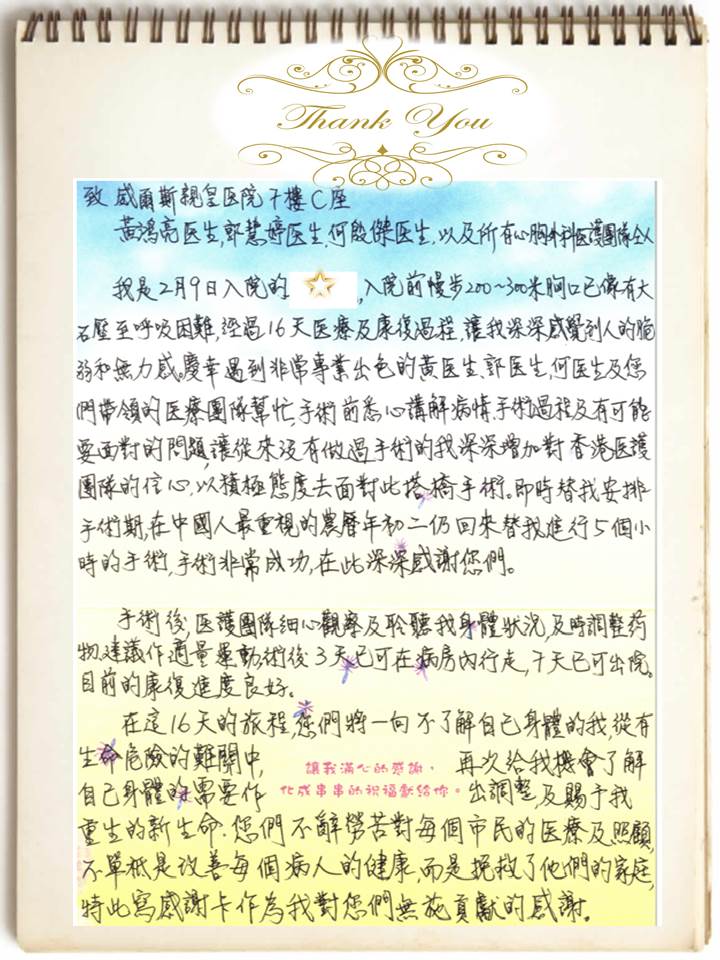 Thank You
致 威爾斯親皇医院 7樓C座
黃鴻亮医生,郭慧婷医生,何啟傑医生,以及所有心胸外科医護團隊全人
我是2月9日入院的 ,入院前慢步200~300米胸口已像有大
石壓至呼吸困難,經過16天医療及康復過程,讓我深深感覺到人的脆
弱和無力感。慶幸遇到非常專業出色的黃医生,郭医生,何医生及您
們帶領的医療團隊幫忙,手術前悉心講解病情,手術過程及有可能
要面對的問題,讓從來沒有做過手術的我深深增加對香港医護
團隊的信心,以積極態度去面對此搭橋手術。即時替我安排
手術期,在中國人最重視的農曆年初二仍回來替我進行5個小
時的手術,手術非常成功,在此深深感謝您們。
手術後,医護團隊細心觀察及聆聽我身體狀況,及時調整药
物,建議作適量運動,術後3天已可在病房內行走,7天已可出院。
目前的康復進度良好。
在這16天的旅程,您們將一向不了解自己身體的我,從有
生命危險的難關中, 再次給我機會了解
自己身體的需要作 出調整,及賜于我
讓我滿心的感謝,
化成串串的祝福獻給你。
重生的新生命.您們不辭勞苦對每個市民的医療及照顧,
不單祗是改善每個病人的健康,而是挽救了他們的家庭,
特此寫感謝卡作為我對您們無施貢獻的感謝。